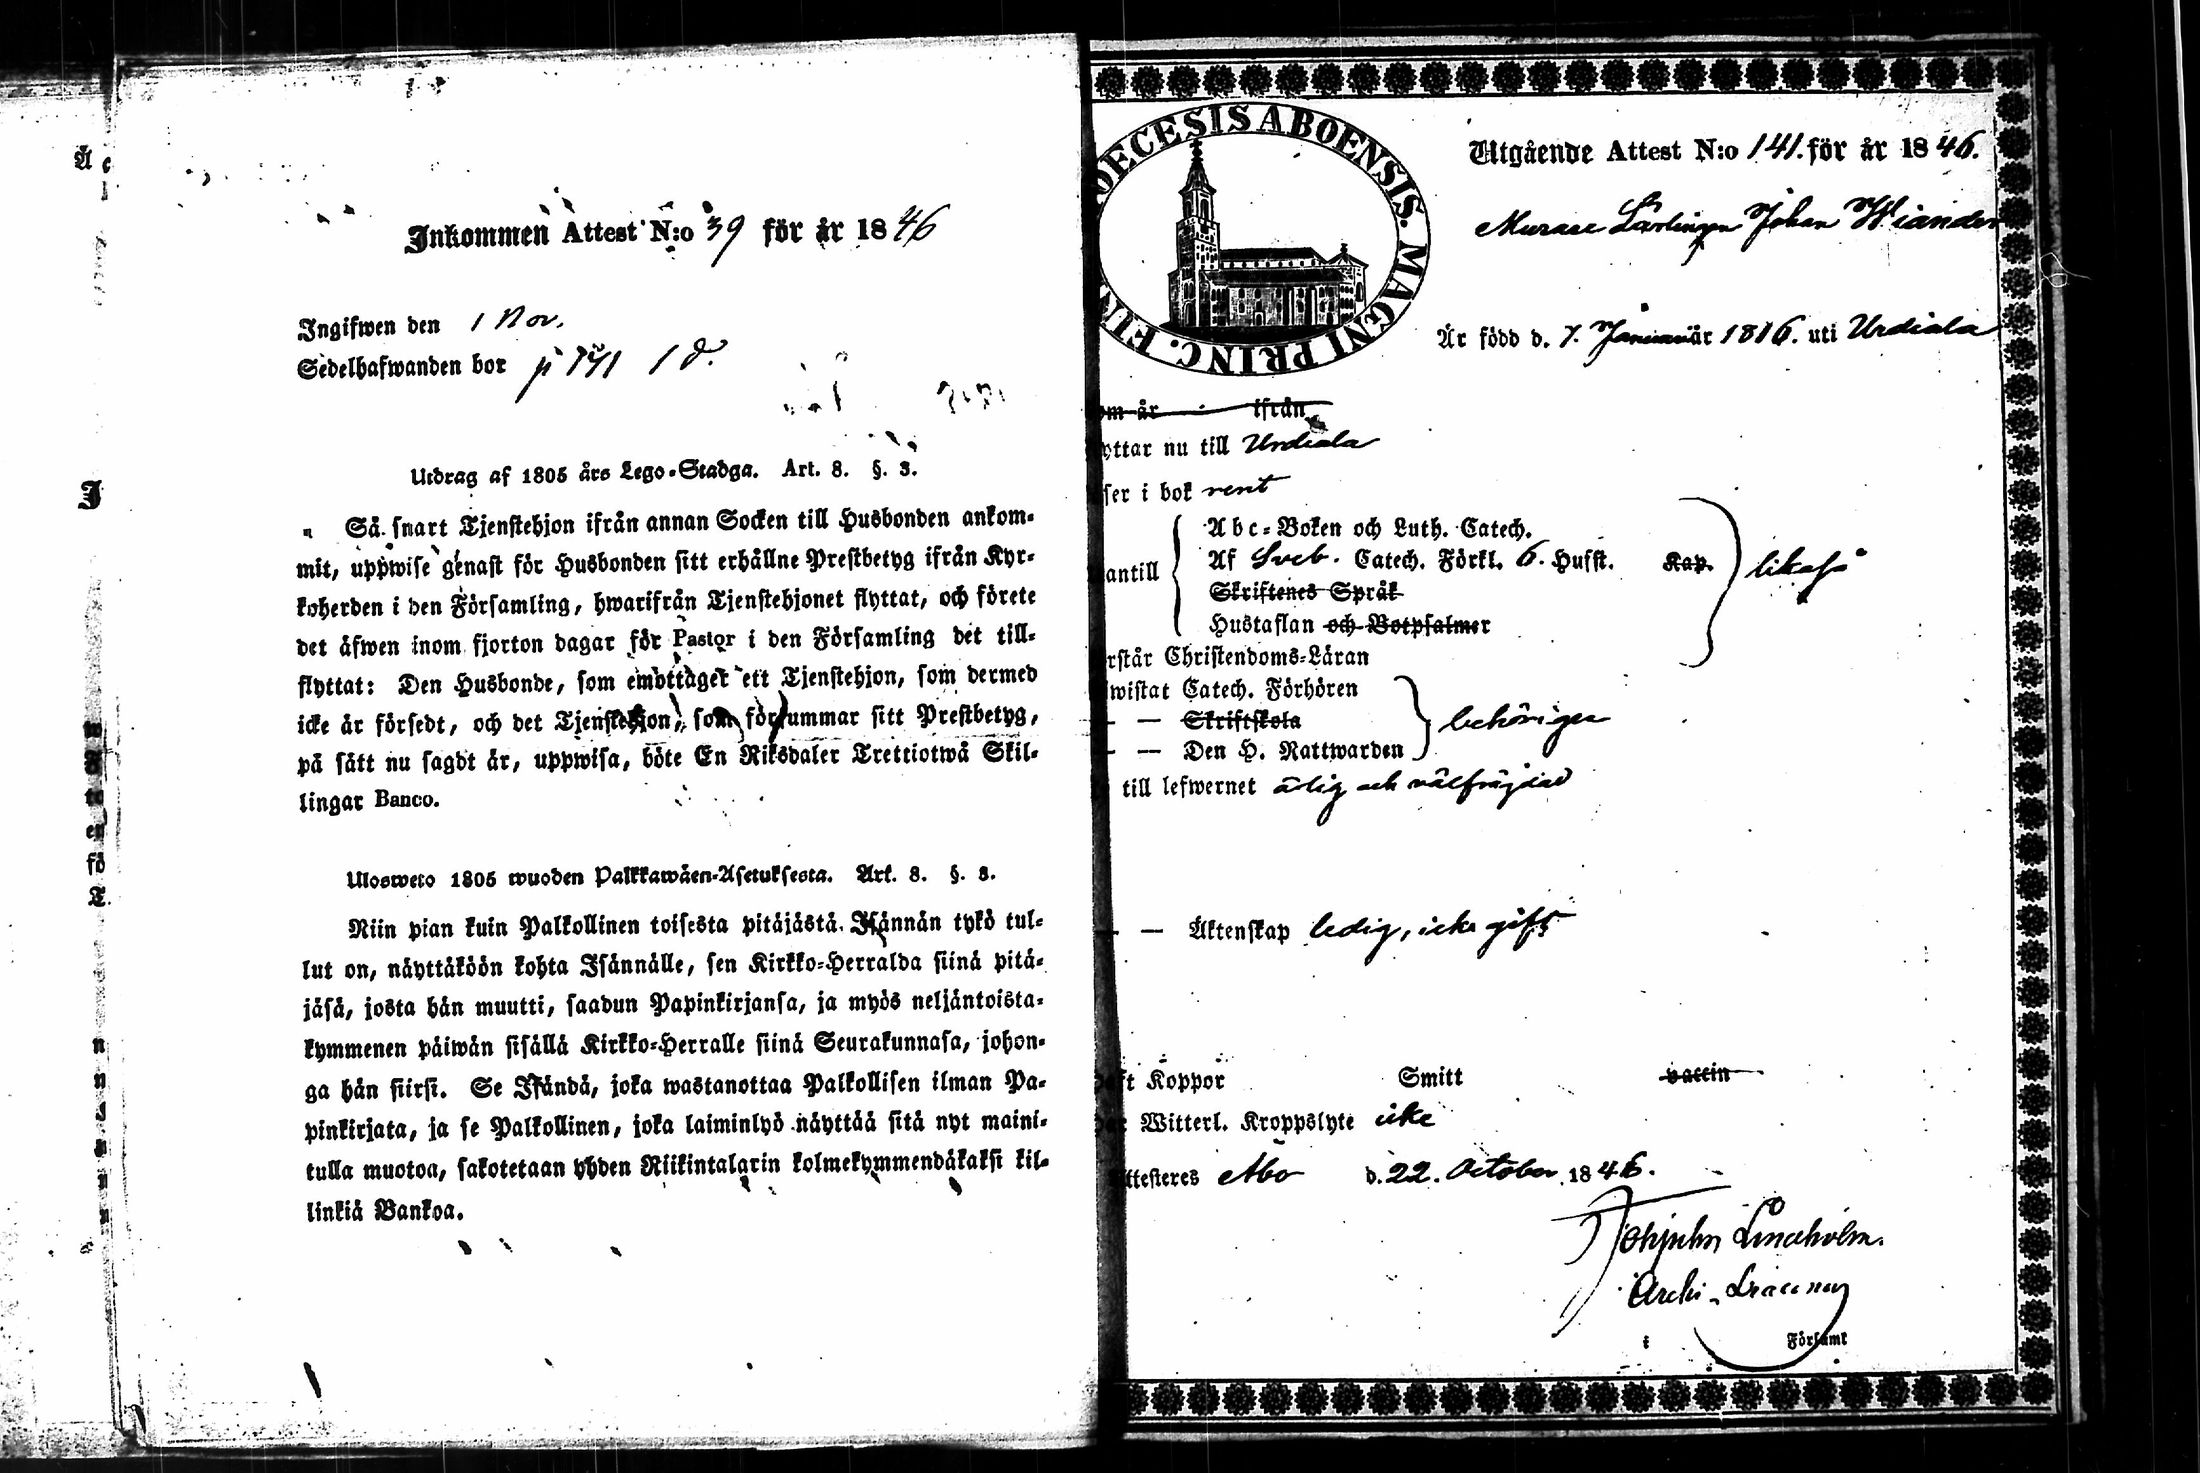 Inkommen Attest N:o 39 för år 1846
Ingifwen den 1 Nov.
Sedelhafwanden bor
Utdrag af 1805 års Lego-Stadga. Art. 8. §. 3.
Så snart Tjenstehjon ifrån annan Socken till Husbonden ankom-
mit, uppwise genast för Husbonden sitt erhållne Prestbetyg ifrån Kyr-
koherden i den Församling, hwarifrån Tjenstehjonet flyttat, och förete
det äfwen inom fjorton dagar för Pastor i den Församling det till-
flyttat: Den Husbonde, som emottaget ett Tjenstehjon, som dermed
icke är försedt, och det Tjenstehjon, som försummar sitt Prestbetyg,
på sätt nu sagdt är, uppwisa, böte En Riksdaler Trettiotwå Skil-
lingar Banco.
Ulosweto 1805 wuoden Palkkawäen-Asetuksesta. Art. 8. §. 3.
Niin pian kuin Palkollinen toisesta pitäjästä Isännän tykö tul-
lut on, näyttäköön kohta Isännälle, sen Kirkko-Herralda siinä pitä-
jäsä, josta hän muutti, saadun Papinkirjansa, ja myös neljäntoista-
kymmenen päiwän sisällä Kirkko-Herralle siinä Seurakunnasa, johon-
ga hän siirsi. Se Isändä, joka wastanottaa Palkollisen ilman Pa-
pinkirjata, ja se Palkollinen, joka laiminlyö näyttää sitä nyt maini-
tulla muotoa, sakotetaan yhden Riikintalarin kolmekymmendäkaksi kil-
linkiä Bankoa.
OECESIS ABOENSIS. MAGNI PRINC. FIN
Utgående Attest N:o 141. för år 1846.
Murare Lärlingen Johan Wiander
Är född d. 7. Januariär 1816. uti Urdiala
om år ifrån
yttar nu till Urdiala
ser i bok rent
Abc-Boken och Luth. Catech.
antill Af Sveb. Catech. Förkl. 6. Husst. Kap. likaså
Skriftenes Språk
Hustaflan och Botpsalmer
rstår Christendoms-Läran
wistat Catech. Förhören
— — Skriftskola behörigen
— — Den H. Nattwarden
till lefwernet ärlig och välfrägdad
— — Äktenskap ledig, icke gift
aft Koppor Smitt vaccin
ar Witterl. Kroppslyte icke
ttesteres Åbo d. 22. October 1846.
Lindholm.
Archi-Diaconus
i Församl